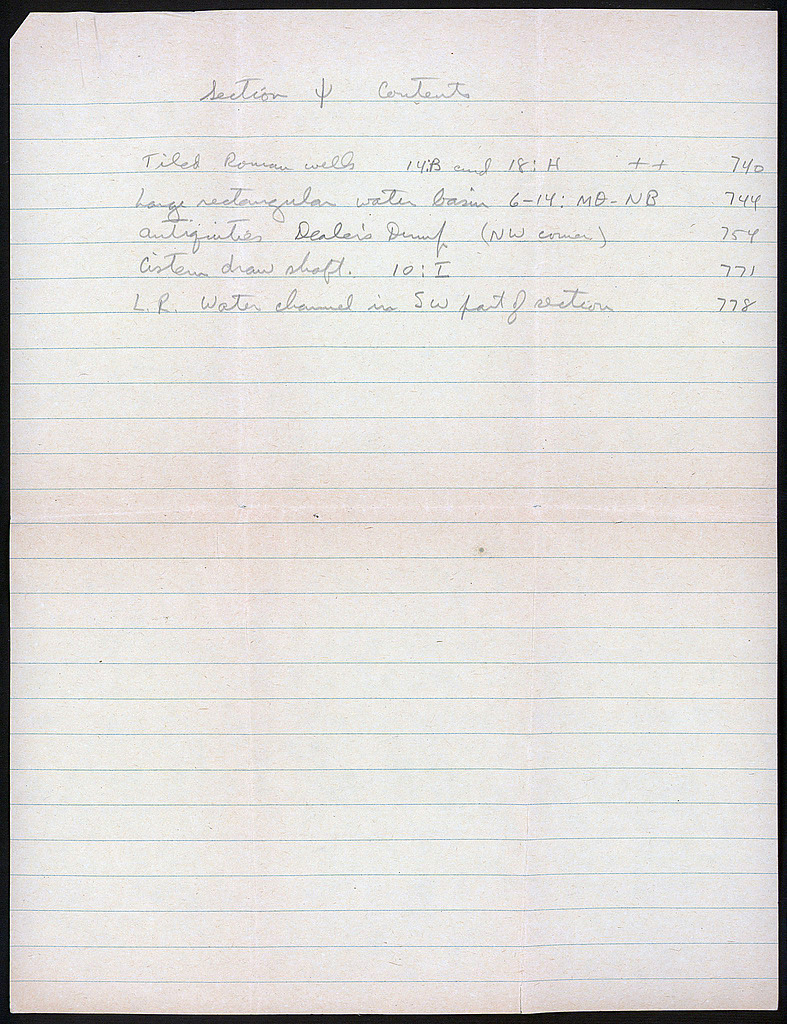 Section Ψ Contents
Tiled Roman wells 14:B and 18:H ++ 740
Large rectangular water basin 6-14: ΜΘ-ΝΒ 744
Antiquities Dealer's Dump (NW corner) 754
Cistern draw shaft. 10:I 771
L.R. Water channel in SW part of section 778